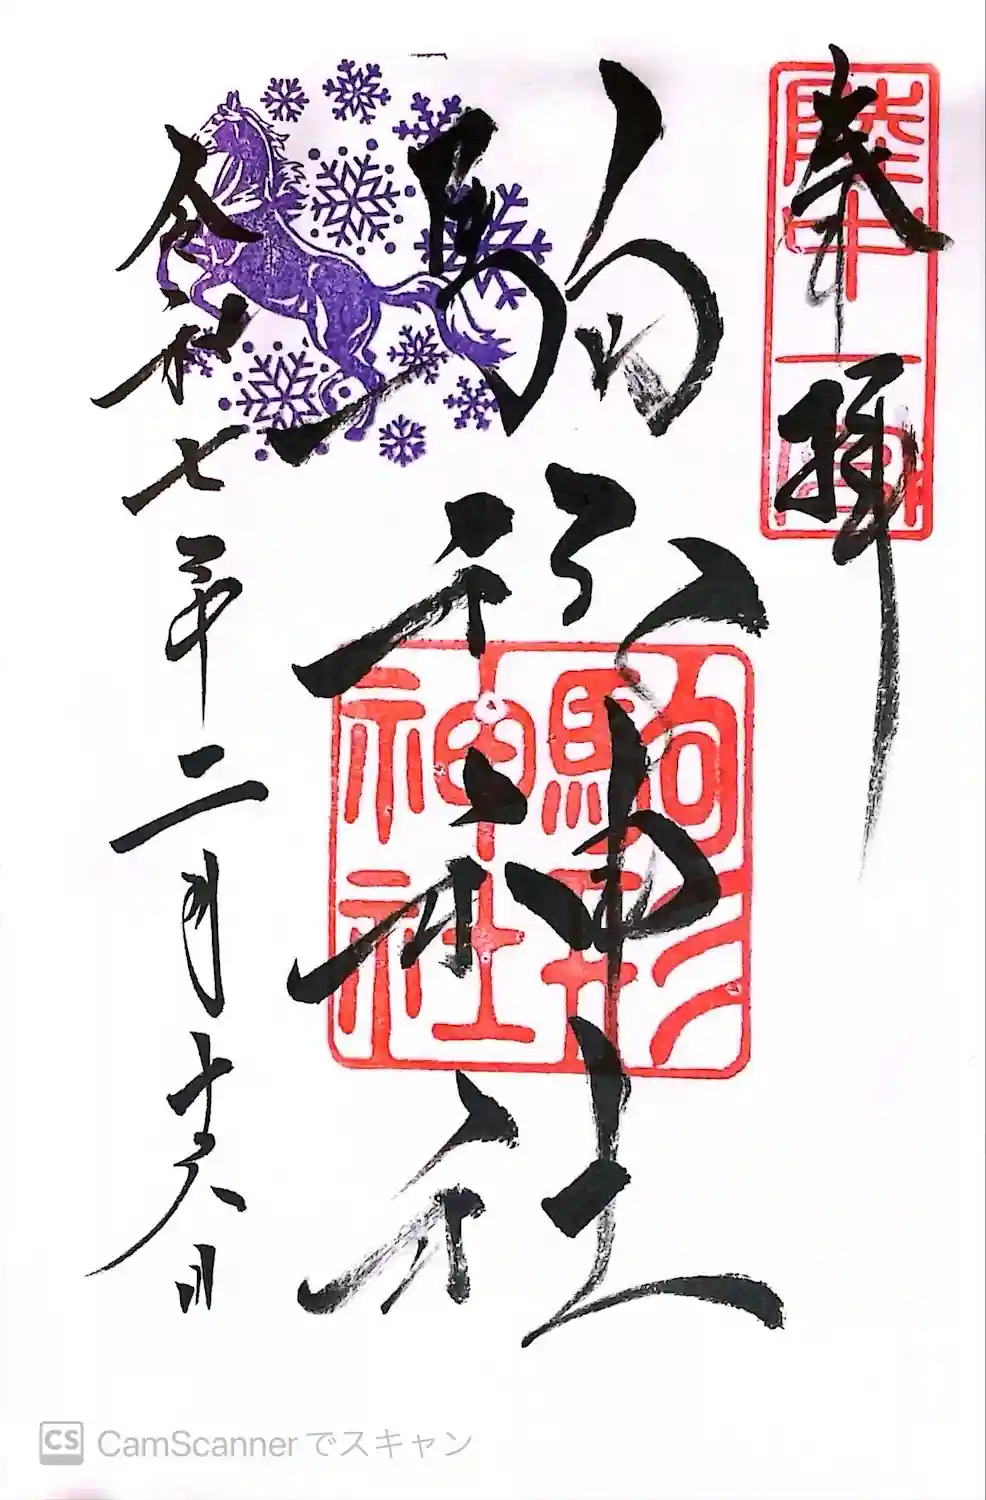 奉拝
陸中一宮
駒形神社
駒形神社
令和七年二月十六日
CS CamScannerでスキャン